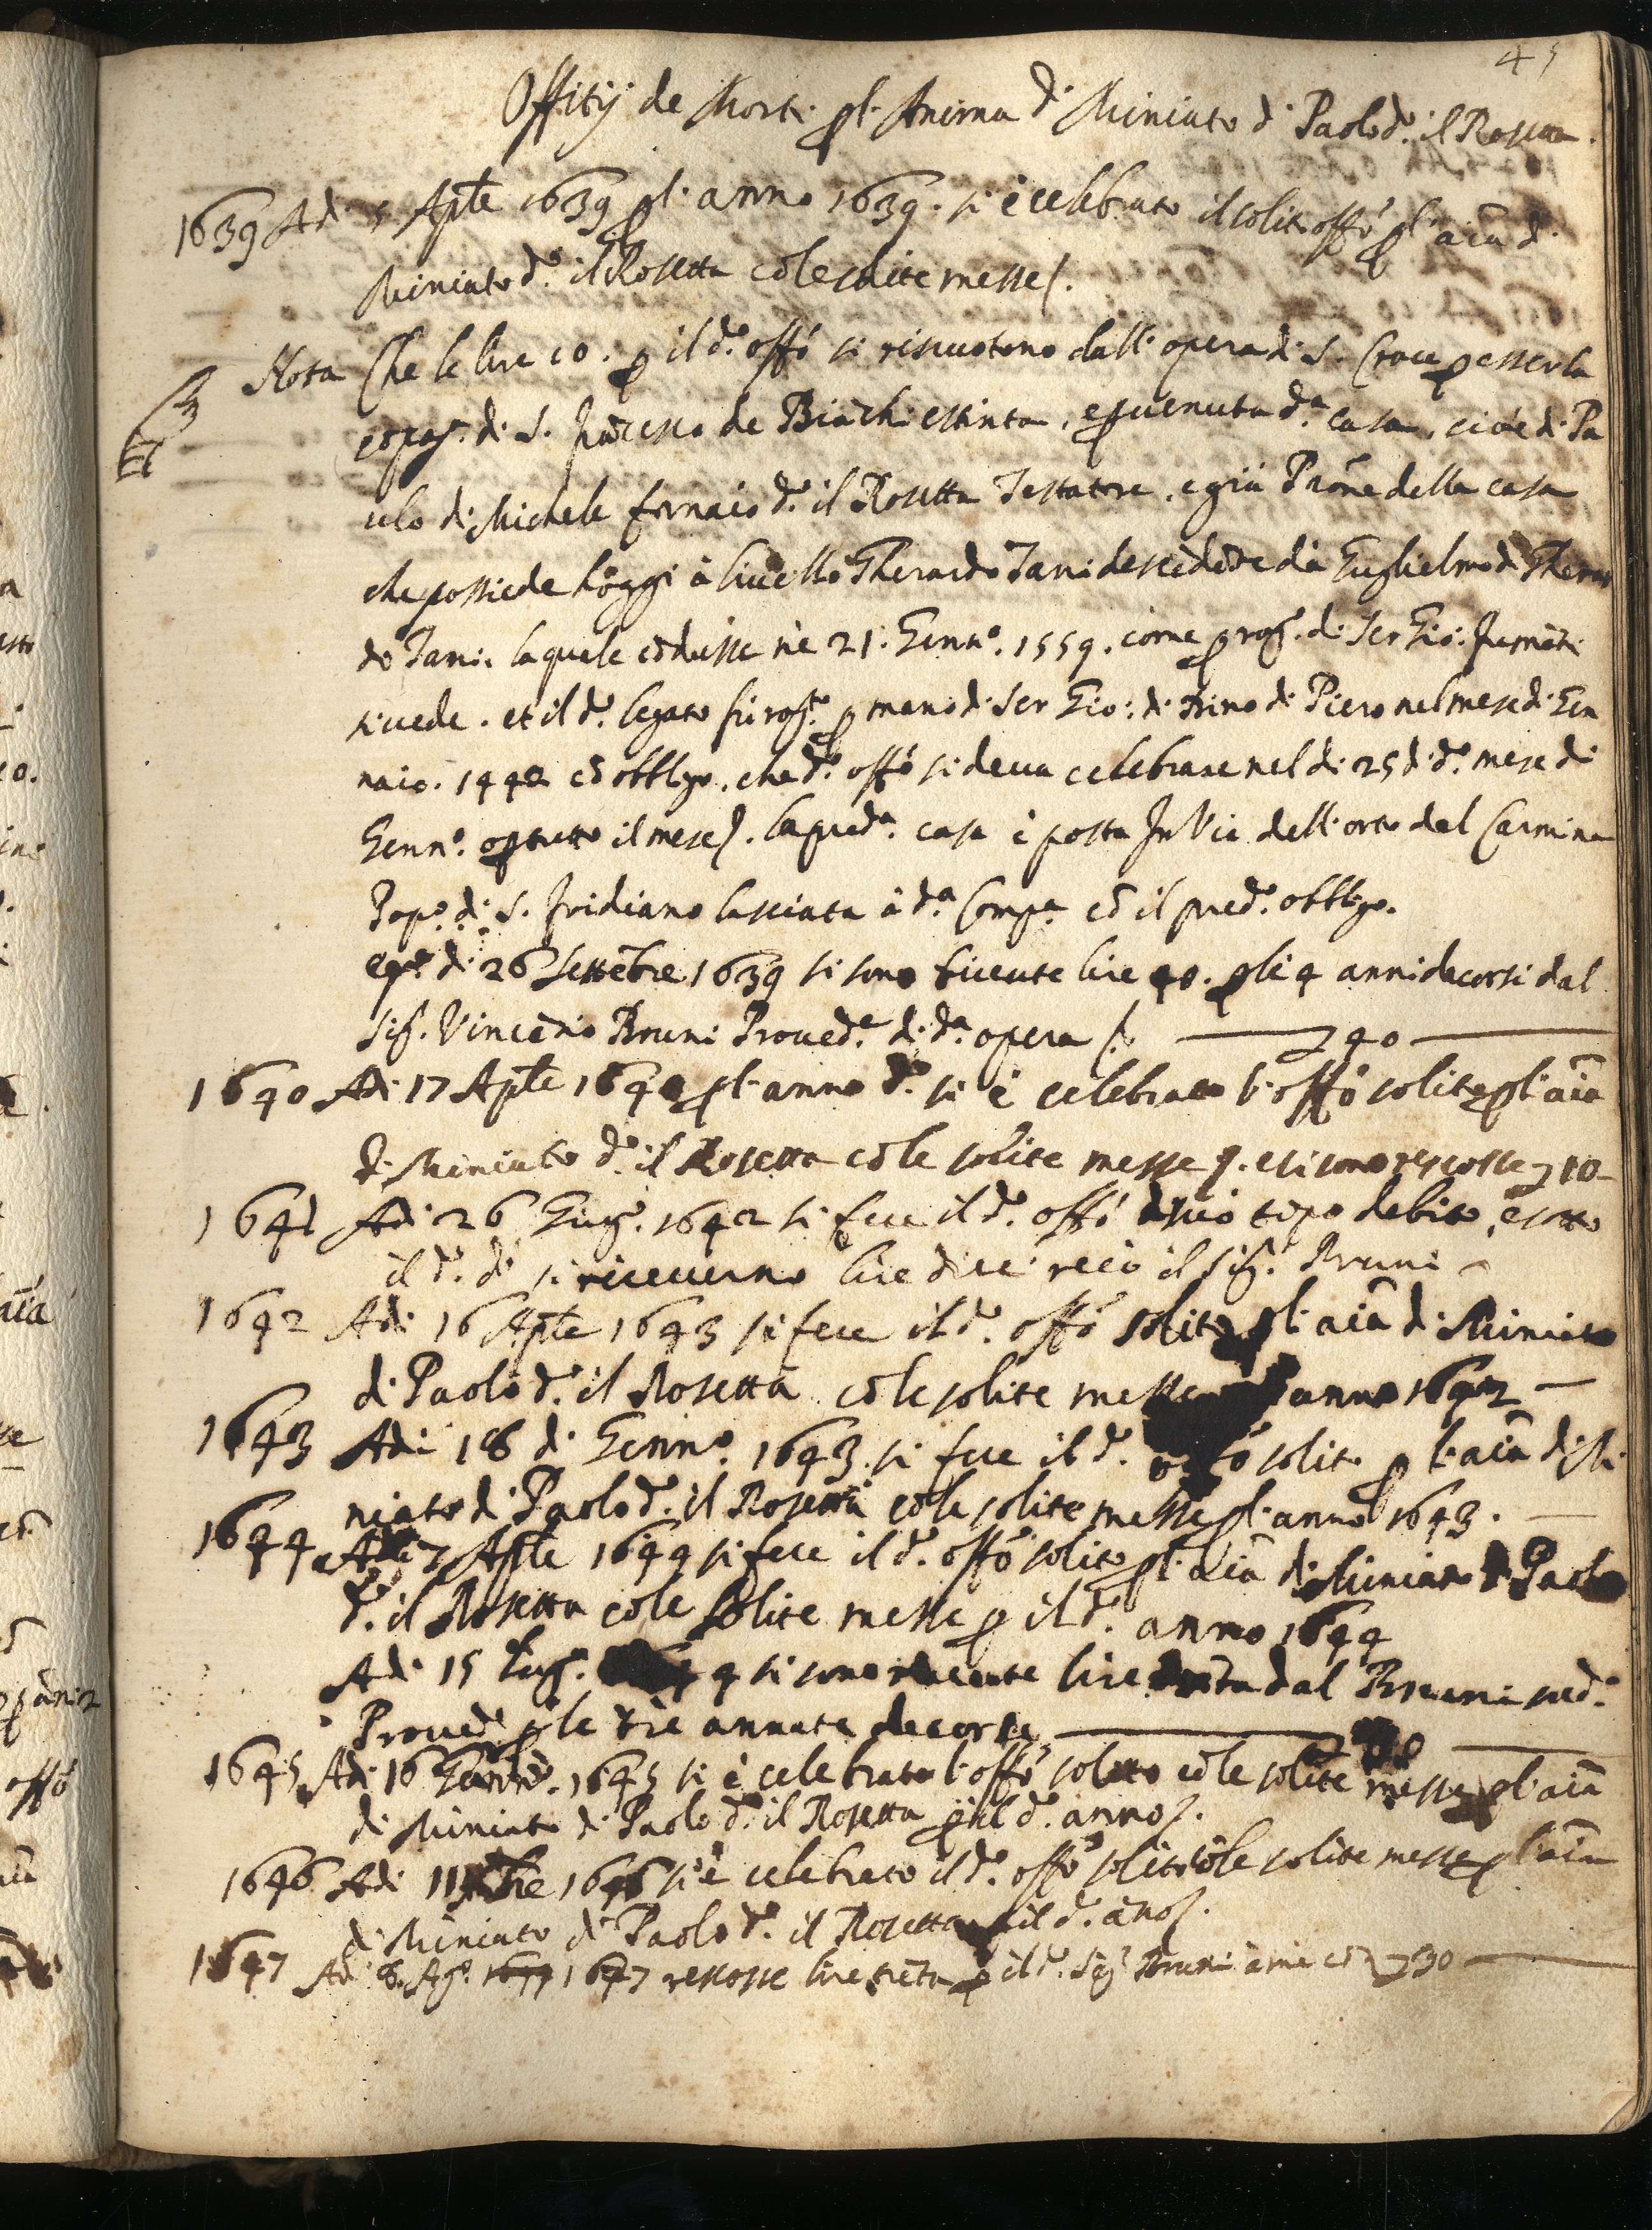 45
Offitij de Morti p l'Anima di Miniato di Paolo d.º il Rosetta.
1639 Adi 5 Aple 1639 p l'anno 1639. si è celebrato il solito offo p l'aia di
Miniato d.º il Rosetta cō le solite messe.
Nota Che le lire 10. p il d.º offo si riscuotono dall'opera di S. Croce p esser la
cōpag.ª di S. Frācesco de Biāchi estinta, e puenuta d.ª casa, cioè di Pa
olo di Michele fornaio d.º il Rosetta Testatore, e già Prōne della casa
che possiede hoggi à livello Gherardo Tani descēdēte da Guglielmo di Gherar
do Tani. la quale cōdusse ne 21. Genn.º 1559. come p rog.º di Ser Gio:
si vede. et il d.º legato fù rog.to p mano di Ser Gio: di Dino di Piero nel mese di Gen
naio. 1440 cō obbligo, che d.º offo si deva celebrare nel di 25 di d.º mese di
Genn.º o p tutto il mese. la pred.ª casa è posta In Via dell'orto del Carmine
Pop.º di S. Fridiano lasciata à d.ª Comp.ª cō il pred.º obbligo.
di 26 Settēbre 1639 si sono ricevute lire 40. p li 4 anni decorsi dal
Sig. Vincēnio Bruni Proved.e di d.ª opera 40
1640 Adi 17 Aple 1640 p l'anno d.º si è celebrato l'offo solito p l'aia
di Miniato d.º il Rosetta cō le solite messe. e si sono rescosse 10
1641 Adi 26 Giug.º 1642 si fece il d.º offo à suo tēpo debito, e sotto
il d.º dì si riceverno lire dieci recò il Sig. Bruni
1642 Adi 16 Aple 1643 si fece il d.º offo solito p l'aia di Miniato
di Paolo d.º il Rosetta cō le solite messe anno 1642
1643 Adi 18 di Genn.º 1643 si fece il d.º offo solito p l'aia di Mi
niato di Paolo d.º il Rosetta cō le solite messe p l'anno 1643.
1644 Adi 7 Aple 1644 si fece il d.º offo solito p l'aia di Miniato di Paolo
d.º il Rosetta cō le solite messe p il d.º anno 1644
Adi 15 Lug.º 4 si sono ricevute lire trēta dal Bruni sud.º
Proved.e p le trè annate decorse
1645 Adi 16 1645 si è celebrato l'offo solito cō le solite messe p l'aia
di Miniato di Paolo d.º il Rosetta p il d.º anno.
1646 Adi 11 1646 si è celebrato il d.º offo solito cō le solite messe p l'aia
di Miniato di Paolo d.º il Rosetta p il d.º āno.
1647 Adi 8. Ag.º 1647 rescosse lire trēta p il d.º Sig. Bruni à me cō.ti 30